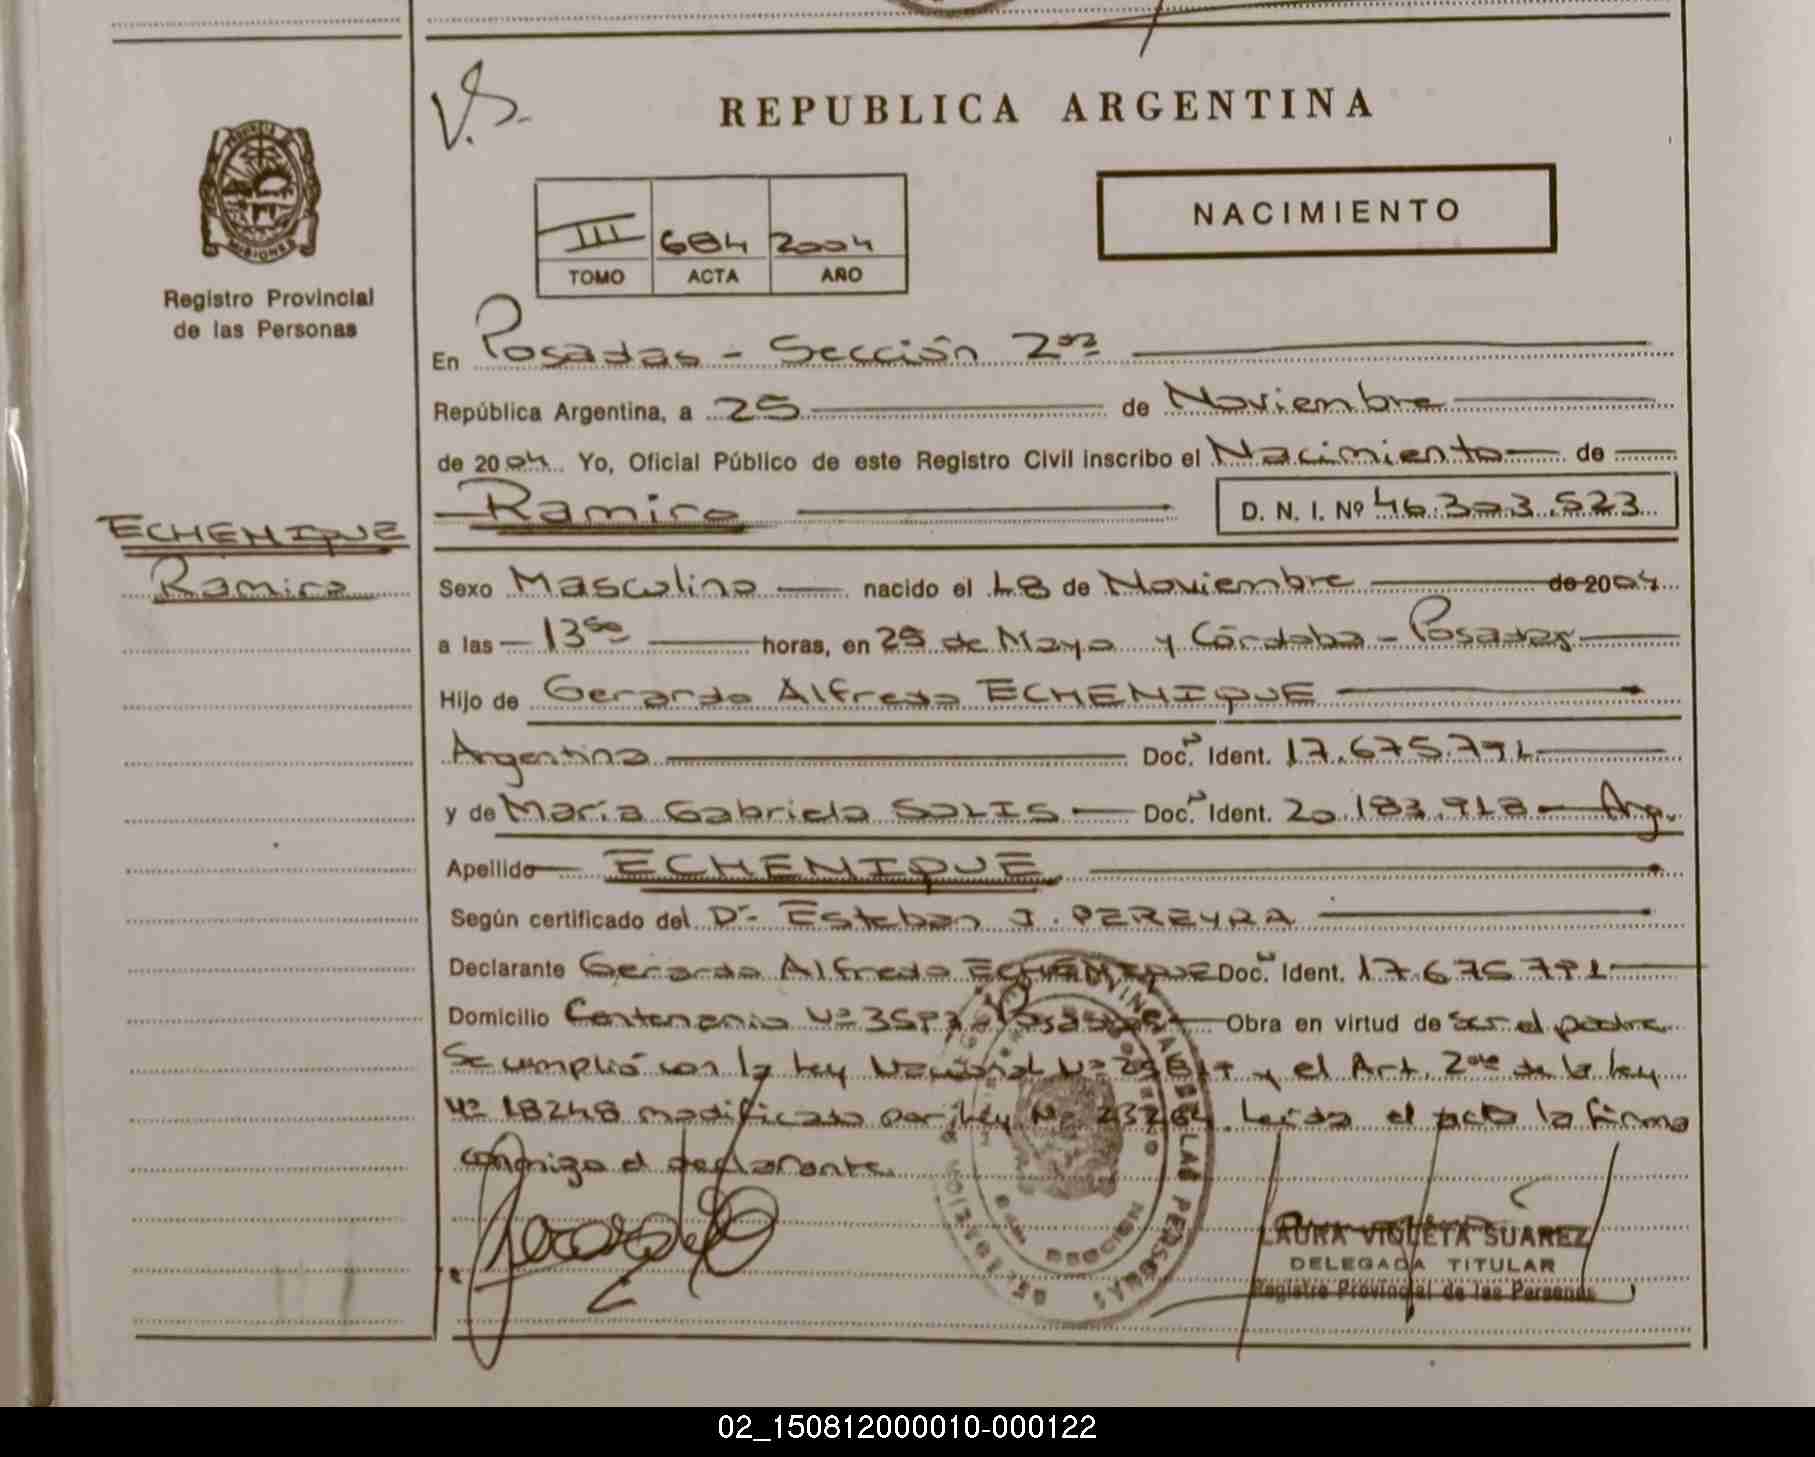 V.S.
REPUBLICA ARGENTINA
NACIMIENTO
III 684 2004
TOMO ACTA AÑO
MISIONES
Registro Provincial
de las Personas
En Posadas - Sección 2da
República Argentina, a 25 de Noviembre
de 2004 Yo, Oficial Público de este Registro Civil inscribo el Nacimiento de
Ramiro D. N. I. Nº 46.303.523
ECHENIQUE
Ramiro
Sexo Masculino nacido el 18 de Noviembre de 2004
a las 13 horas, en 25 de Mayo y Córdoba - Posadas
Hijo de Gerardo Alfredo ECHENIQUE
Argentina Doc. Ident. 17.675.791
y de María Gabriela SOLIS Doc. Ident. 20.183.918 Arg.
Apellido ECHENIQUE
Según certificado del Dr. Esteban J. PEREYRA
Declarante Gerardo Alfredo ECHENIQUE Doc. Ident. 17.675.791
Domicilio Centenario Nº Posadas Obra en virtud de ser el padre
Se cumplió con la ley Nacional Nº y el Art. 2 de la ley
Nº 18248 modificado por ley Nº 23264. Leída el acta la firma
conmigo el declarante.
LAURA VIOLETA SUAREZ
DELEGADA TITULAR
Registro Provincial de las Personas
02_150812000010-000122